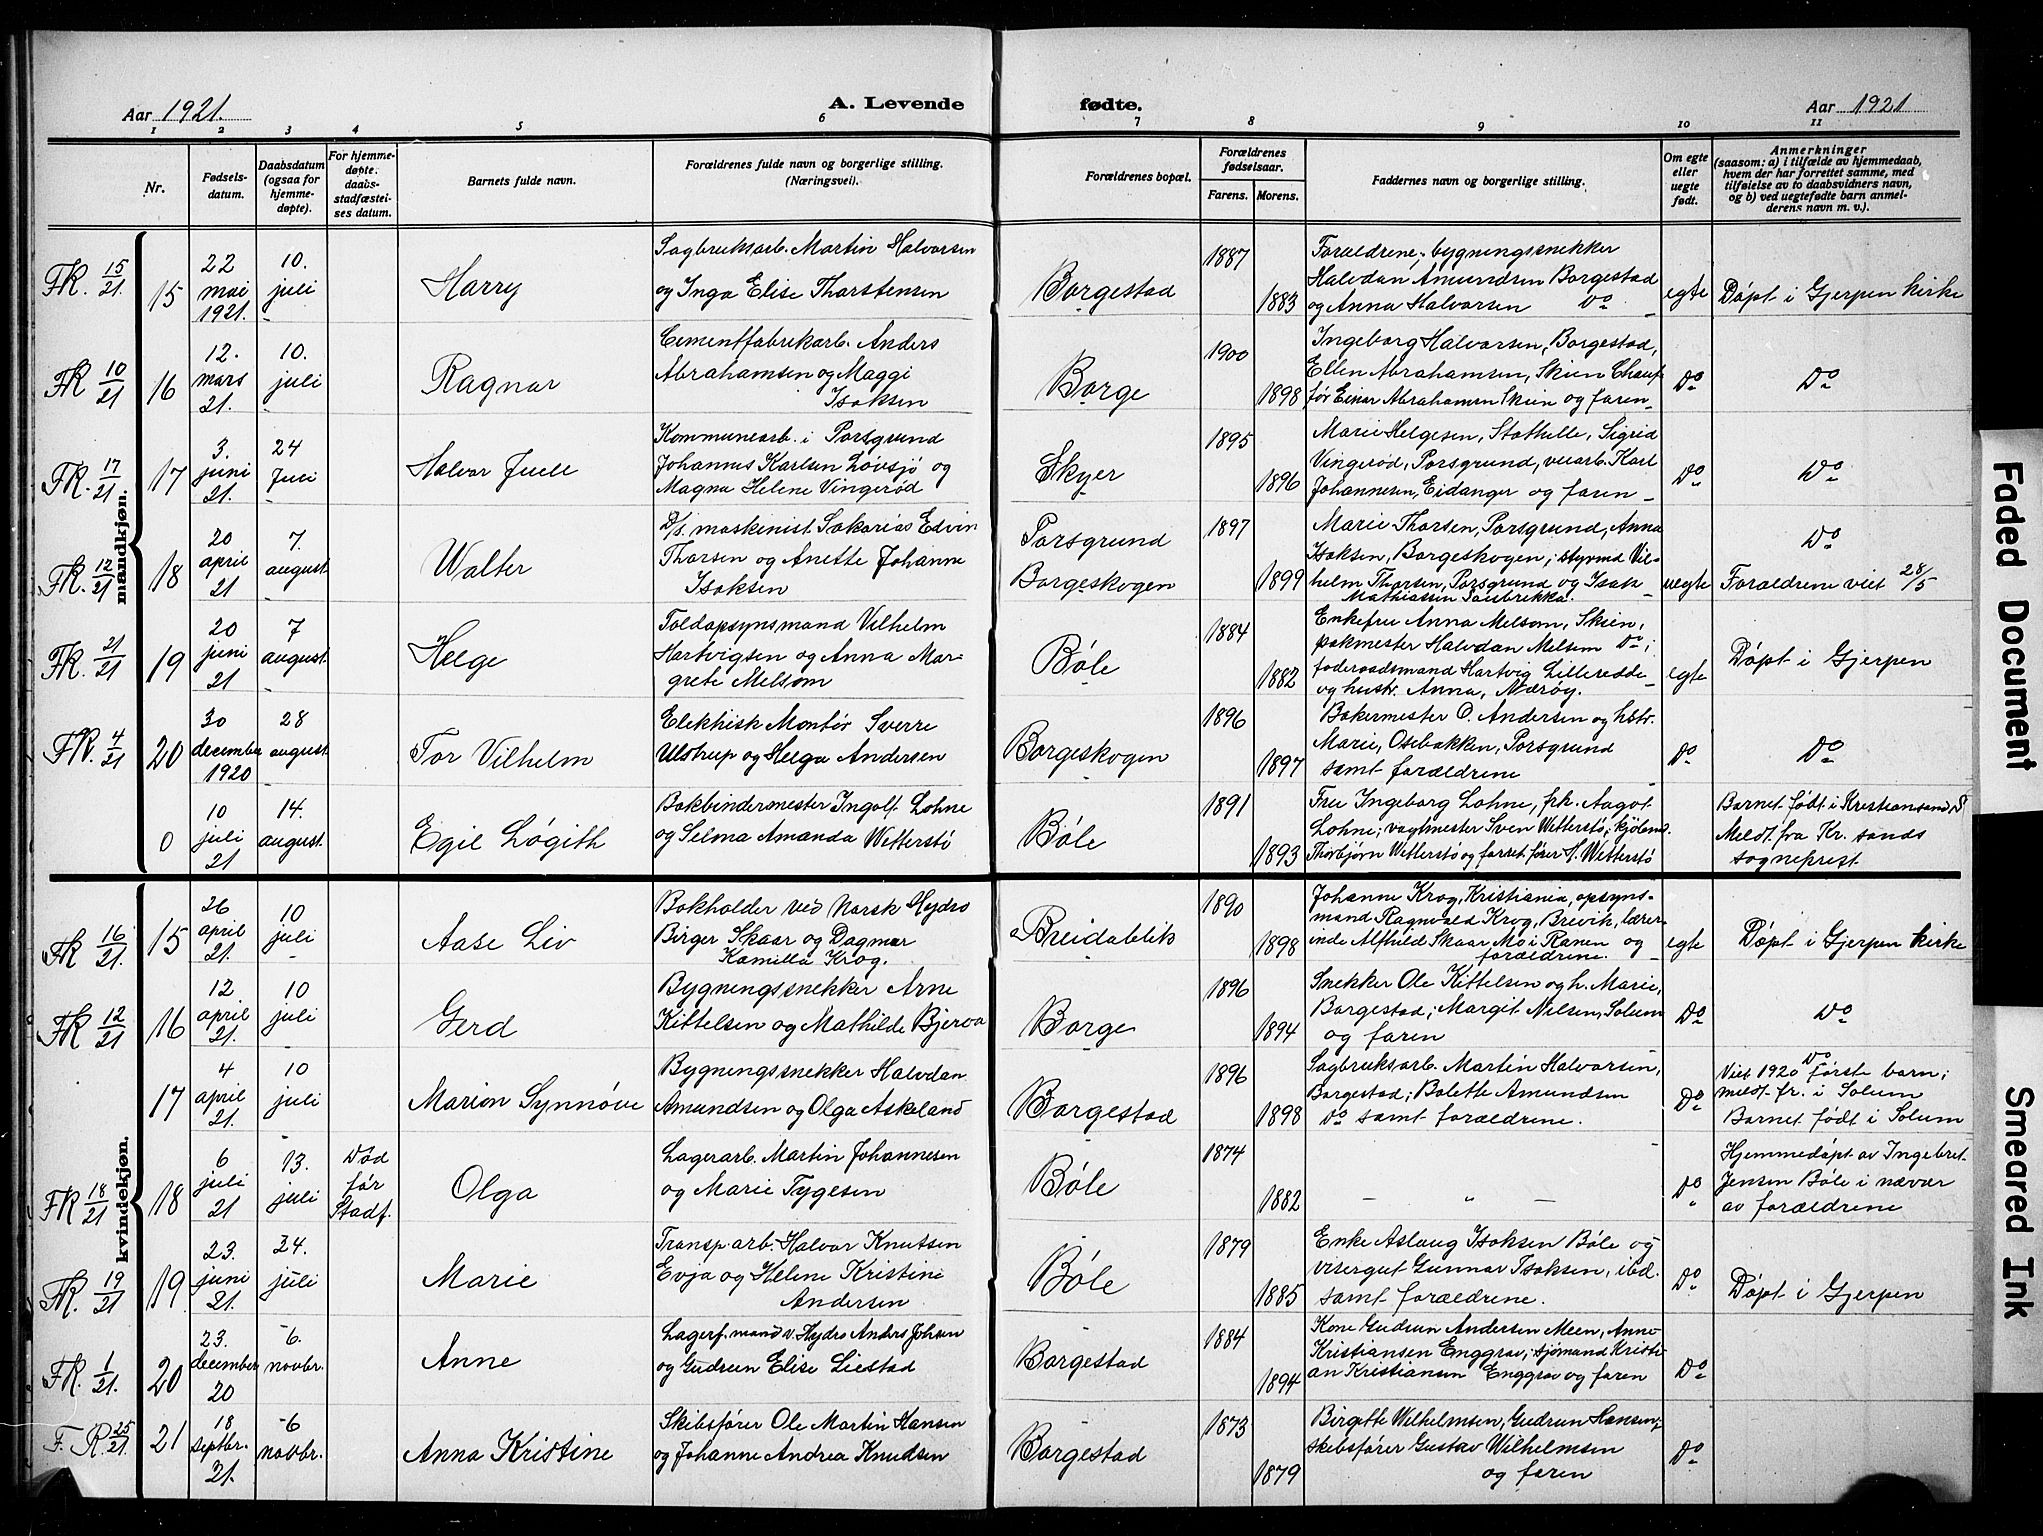 Aar 1921.
A. Levende
fødte.
Aar 1921
1 2 3 4 5 6 7 8 9 10 11
Nr.
Fødsels-
datum.
Daabsdatum
(ogsaa for
hjemme-
døpte).
For hjemme-
døpte.
daabs-
stadfæstel-
ses datum.
Barnets fulde navn.
Forældrenes fulde navn og borgerlige stilling.
(Næringsvei).
Forældrenes bopæl.
Forældrenes
fødselsaar.
Farens. Morens.
Faddernes navn og borgerlige stilling.
Om egte
eller
uegte
født.
Anmerkninger
(saasom: a) i tilfælde av hjemmedaab,
hvem der har forrettet samme, med
tilføielse av to daabsvidners navn,
og b) ved uegtefødte barn anmel-
derens navn m. v.).
mandkjøn.
FR. 15/21.
15
22
mai
1921.
10.
juli
Harry
Sagbruksarb. Martin Halvorsen
og Inga Elise Thorstensen
Borgestad
1887
1883
Forældrene; bygningssnekker
Halvdan Amundsen Borgestad
og Anna Halvorsen Do
egte
Døpt i Gjerpen kirke
FR 10/21
16
12.
mars
21.
10.
juli
Ragnar
Cementfabrikarb. Anders
Abrahamsen og Maggi
Isaksen
Borge
1900
1898
Ingeborg Halvorsen, Borgestad,
Ellen Abrahamsen, Skien Chauf-
før Einar Abrahamsen Skien og faren
Do
Do
FR. 17/21
17
3.
juni
21.
24
Juli
Halvor Juell
Kommunearb. i Porsgrund
Johannes Karlsen Løvsjø og
Magna Helene Vingerød
Skyer
1895
1896
Marie Helgesen, Stathelle, Sigrid
Vingerød, Porsgrund, veiarb. Karl
Johannesen, Eidanger og faren
Do
Do
FR. 12/21
18
20
april
21
7.
august
Walter
D/s. maskinist Sakarias Edvin
Thorsen og Anette Johanne
Isaksen
Porsgrund
Borgeskogen
1897
1899
Marie Thorsen, Porsgrund, Anna
Isaksen, Borgeskogen; styrmd Vil-
helm Thorsen, Porsgrund og Isak
Mathiassen
uegte
Do
Forældrene viet 28/5
FR. 21/21
19
20
juni
21
7
august
Helge
Toldopsynsmand Vilhelm
Hartvigsen og Anna Mar-
grete Melsom
Bøle
1884
1882
Enkefru Anna Melsom, Skien,
pakmester Halvdan Melsom Do;
foderaadsmand Hartvig Lilleredde
og hustr. Anna, Nærøy.
egte
Døpt i Gjerpen
FR. 4/21
20
30
december
1920
28
august
Tor Vilhelm
Elektrisk Montør Sverre
Ulstrup og Helga Andersen
Borgeskogen
1896
1897
Bakermester O. Andersen og hstr.
Marie, Osebakken, Porsgrund
samt forældrene
Do
Do
0
10
juli
21
14.
august
Egil Løgith
Bokbindermester Ingolf Lohne
og Selma Amanda Wetterstø
Bøle
1891
1893
Fru Ingeborg Lohne, frk. Aagot
Lohne; vagtmester Sven Wetterstø; kjøbm.
Thorbjørn Wetterstø og forret. fører H. Wetterstø
Barnet født i Kristiansand S
Meldt fra Kr. sands
sogneprest
kvindekjøn.
FR 16/21.
15
26
april
21.
10
juli
Aase Liv
Bokholder ved Norsk Hydro
Birger Skaar og Dagmar
Kamilla Krog.
Breidablik
1890
1898
Johanne Krog, Kristiania, opsyns-
mand Ragnvald Krog, Brevik, lærer-
inde Alfhild Skaar, Mo i Ranen og
forældrene.
egte
Døpt i Gjerpen kirke
FR 12/21
16
12
april
21.
10
juli
Gerd
Bygningssnekker Arne
Kittelsen og Mathilde Bjerva
Borge
1896
1894
Snekker Ole Kittelsen og h. Marie,
Borgestad; Margit Nilsen, Solum
og faren
Do
Do
17
4
april
21.
10
juli
Marion Synnøve
Bygningssnekker Halvdan
Amundsen og Olga Askeland
Borgestad
1896
1898
Sagbruksarb. Martin Halvorsen,
Borgestad; Bolette Amundsen
Do samt forældrene.
Do
Do
Viet 1920 Første barn;
meldt fr. i Solum
Barnet født i Solum
FR 18/21
18
6
juli
21
13.
juli
Død
før
Stadf.
Olga
Lagerarb. Martin Johannesen
og Marie Tygesen
Bøle
1874
1882
— " —
Do
Hjemmedøpt av Ingebret
Jensen Bøle i nævær
av forældrene
FR. 19/21
19
23.
juni
21.
24.
juli
Marie
Transp. arb. Halvor Knutsen
Evja og Helene Kristine
Andersen
Bøle
1879
1885
Enke Aslaug Isaksen Bøle og
visergut Gunnar Isaksen, ibd.
samt forældrene.
Do
Døpt i Gjerpen
FR. 1/21.
20
23.
december
20
6.
novbr.
Anne
Lagerf.mand v. Hydro Anders Johsen
og Gudrun Elise Liestad
Borgestad
1884
1894
Kone Gudrun Andersen Meen, Anne
Kristiansen Enggrav; sjømand Kristi-
an Kristiansen Enggrav og faren
Do
F. R. 25/21.
21
18
septbr.
21.
6
novbr.
Anna Kristine
Skibsfører Ole Martin Hansen
og Johanne Andrea Knudsen
Borgestad
1873
1879
Birgitte Wilhelmsen, Gudrun Hansen;
skibsfører Gustav Wilhelmsen
og faren
Do
Faded Document
Smeared Ink